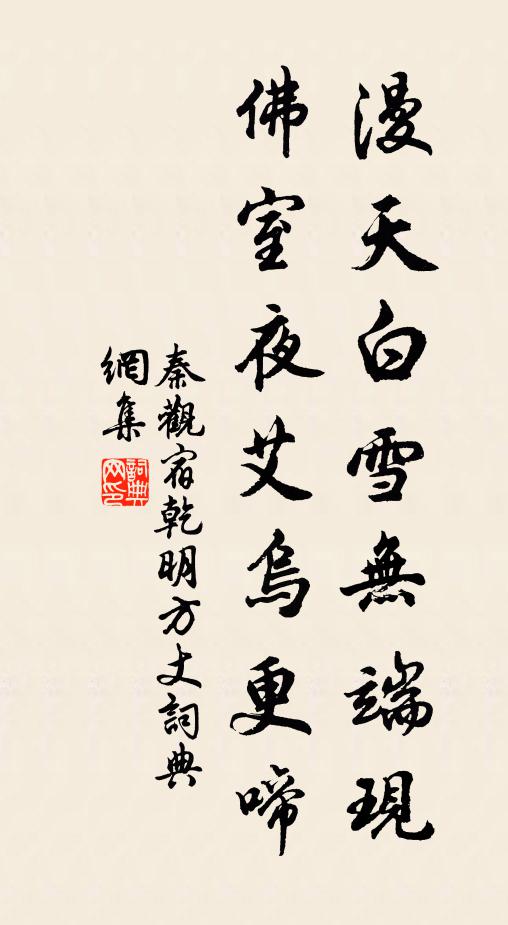 漫天白雪無端現
佛室夜艾烏更啼
秦觀宿乾明方丈詞典
網集
詞典網印